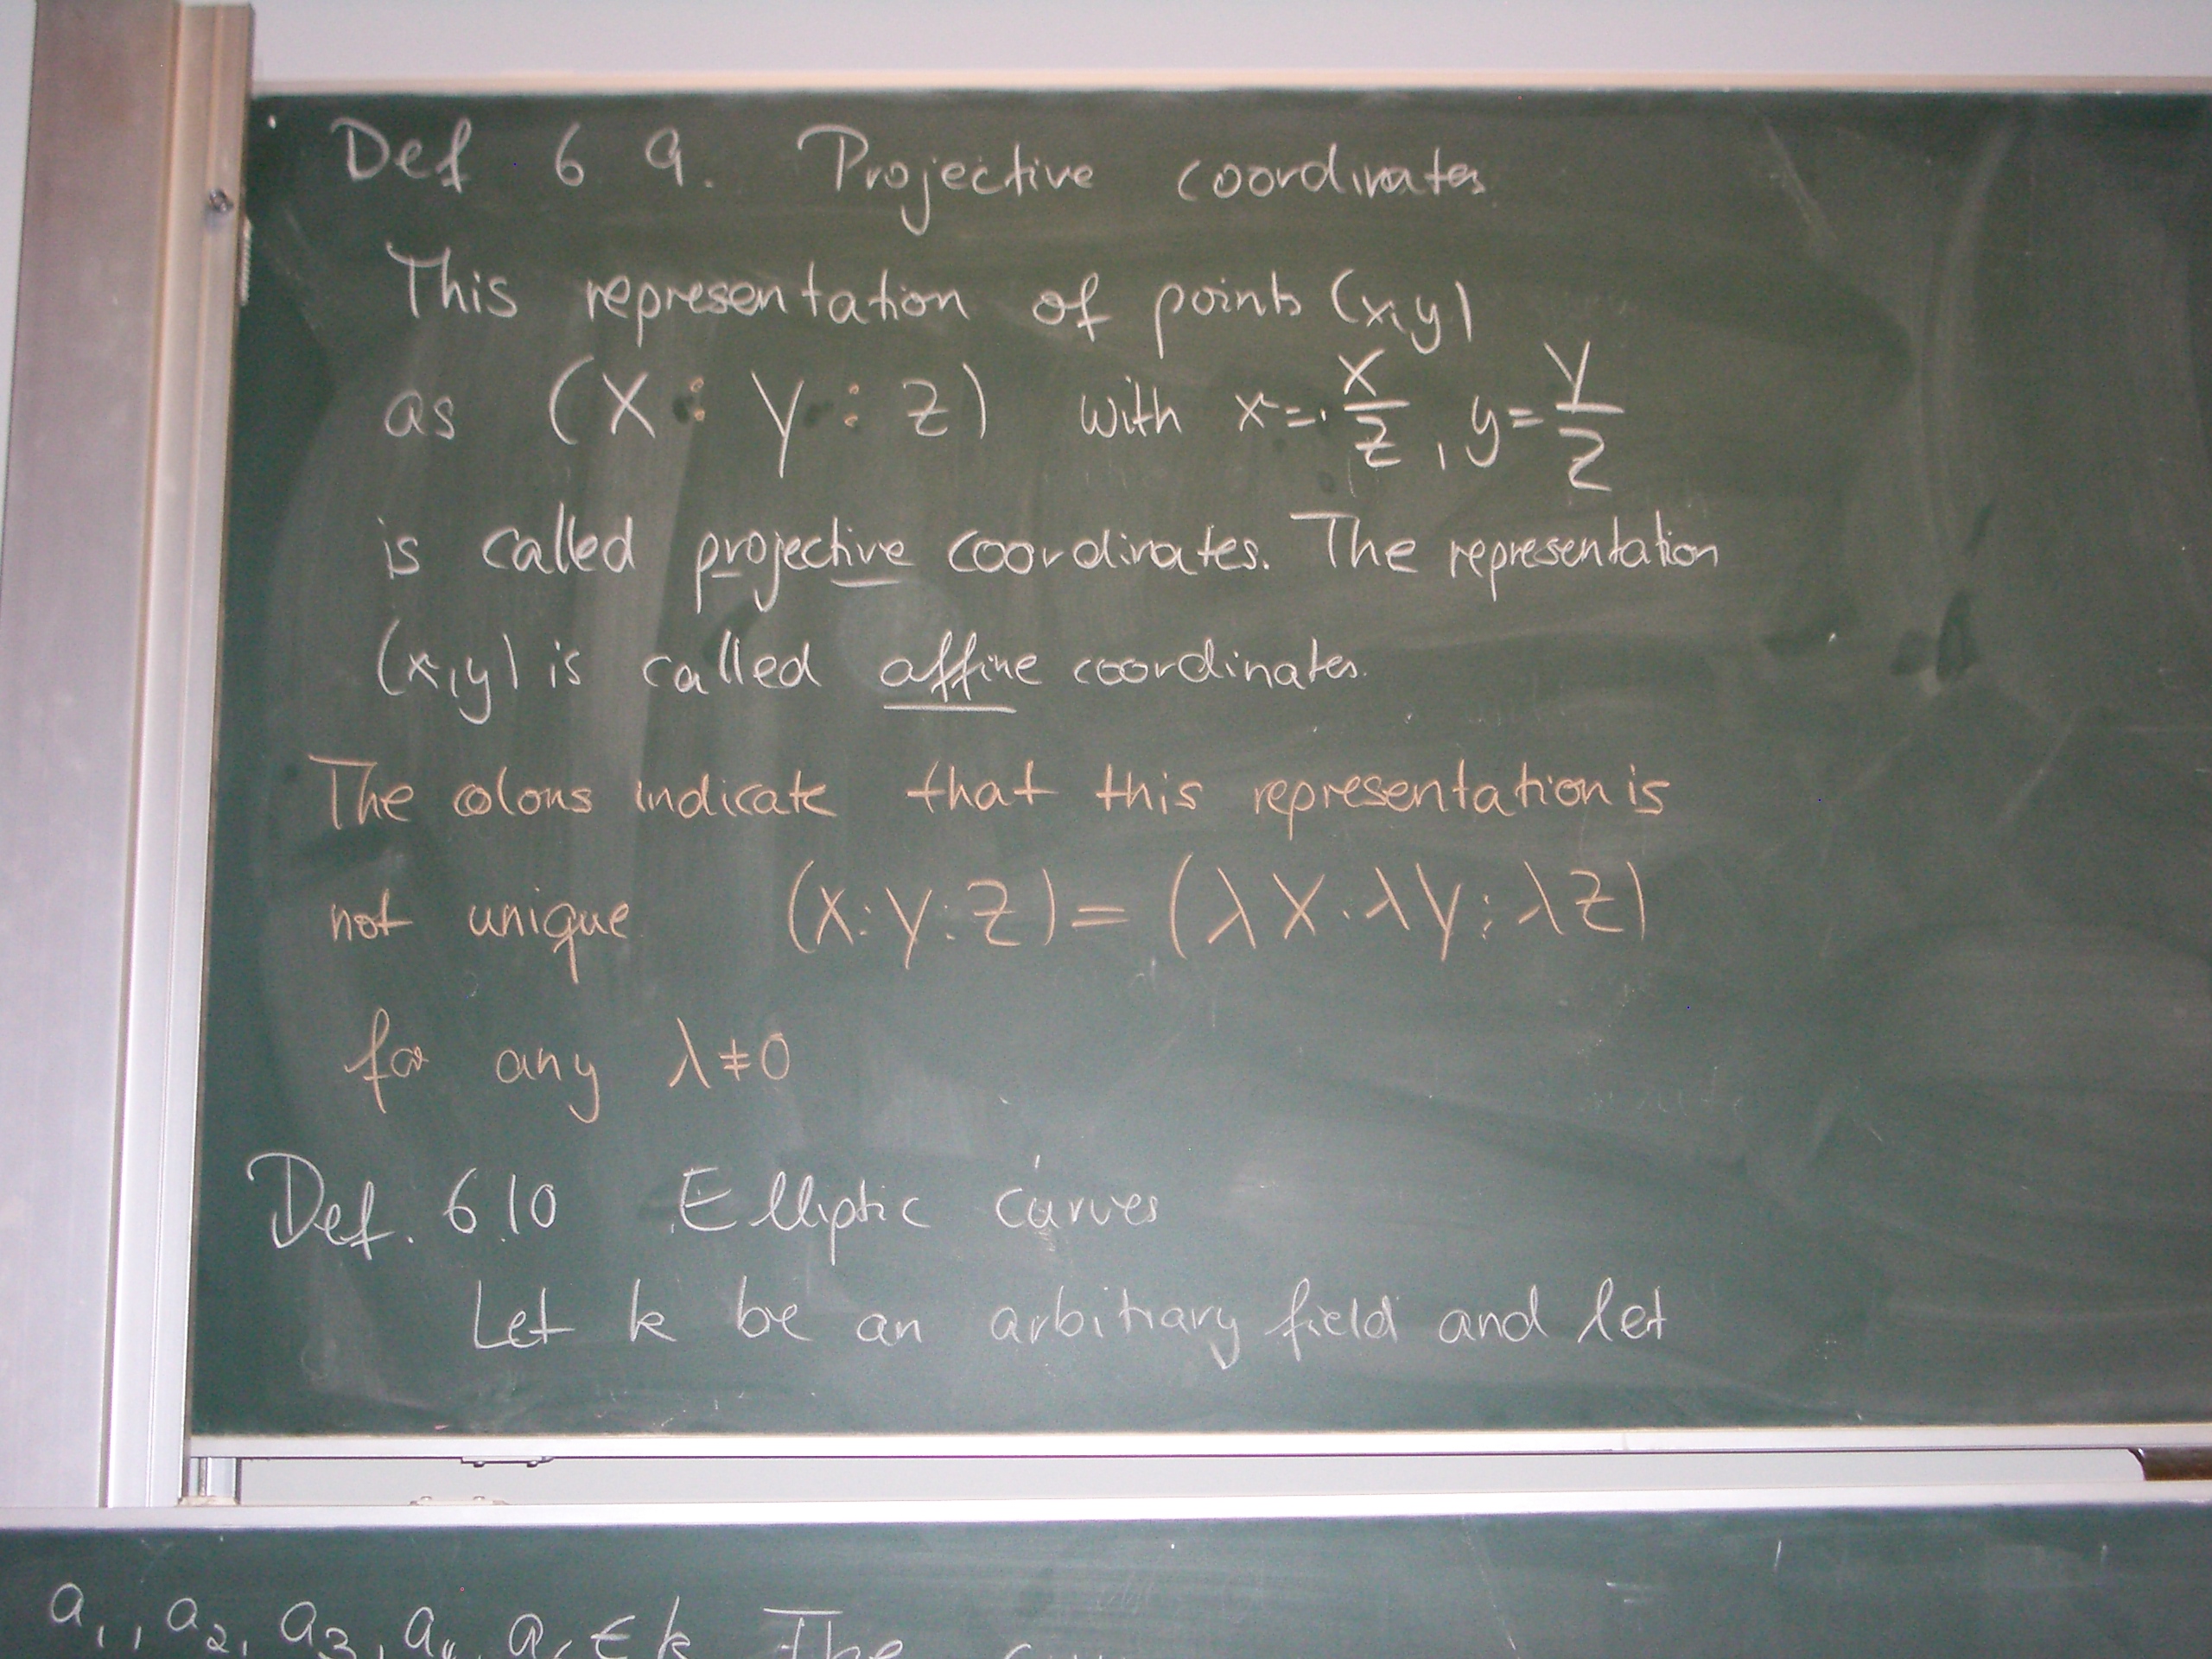 Def 6 9. Projective coordinates
This representation of points (x,y)
as (X : Y : Z) with x = X/Z , y = Y/Z
is called projective coordinates. The representation
(x,y) is called affine coordinates.
The colons indicate that this representation is
not unique (X:Y:Z) = (λX:λY:λZ)
for any λ≠0
Def. 6.10 Elliptic curves
Let k be an arbitrary field and let
a₁, a₂, a₃, a₄, a₆ ∈ k The